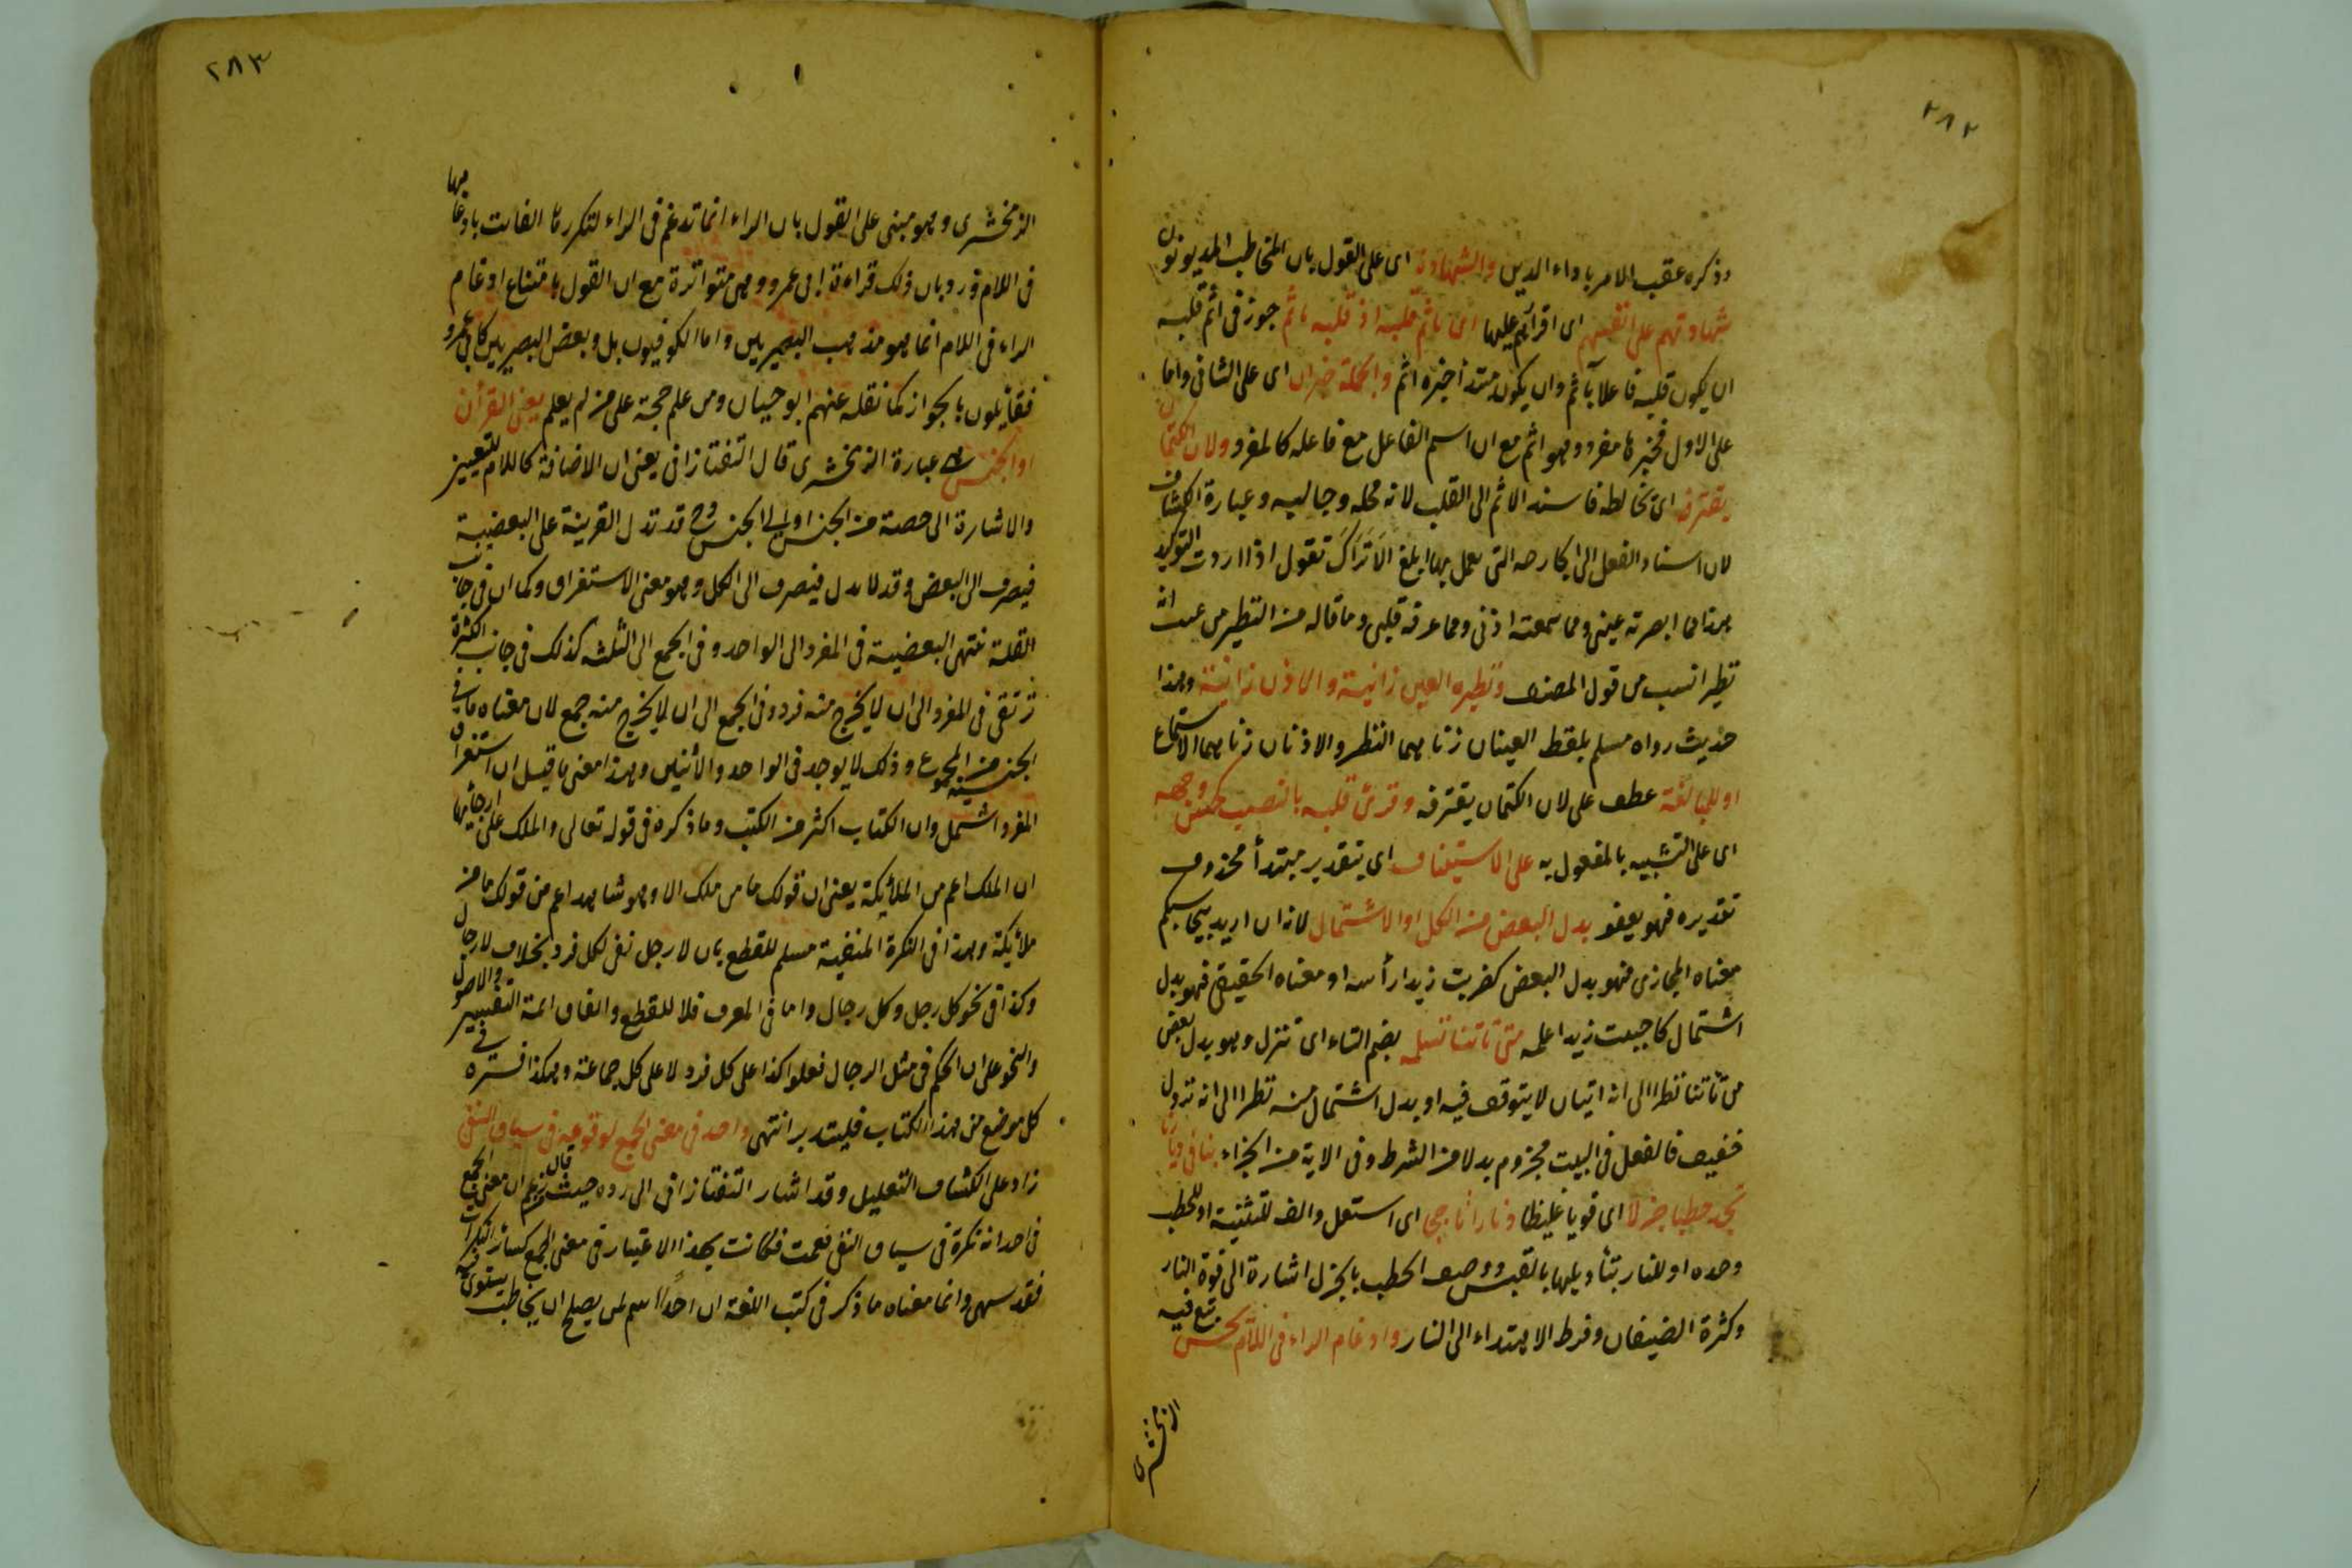 ٢٨٢
وذكره عقب الامر باداء الدين والشهادة اى على القول بان المخاطب المديونون
شهادتهم على انفسهم اى اقرارهم عليها اى ياثم قلبه او قلبه ياثم جوز فى اثم قلبه
ان يكون قلبه فاعلا بآثم وان يكون مبتدأ خبره اثم والجملة خبر ان اى على الثانى واما
على الاول فخبرها مفرد وهو اثم مع ان اسم الفاعل مع فاعله كالمفرد ولان الكتمان
يقترفه اى يخالطه فاسند الاثم الى القلب لانه محله وجالبه وعبارة الكشاف
لان اسناد الفعل الى الجارحة التى يعمل بها ابلغ الا تراك تقول اذا اردت التوكيد
هذا مما ابصرته عينى ومما سمعته اذنى ومما عرفه قلبى وما قاله من التنظير من حيث انه
تنظير انسب من قول المصنف ونظيره العين زانية والاذن زانية وهذا
حديث رواه مسلم بلفظ العينان زناهما النظر والاذنان زناهما الاستماع
او للمبالغة عطف على لان الكتمان يقترفه وقرئ قلبه بالنصب كحسن وجهه
اى على التشبيه بالمفعول به على الاستيناف اى بتقدير مبتدأ محذوف
تقديره فهو يغفر بدل البعض من الكل او الاشتمال لانه ان اريد بيحاسبكم
معناه المجازى فهو بدل البعض كضربت زيدا رأسه او معناه الحقيقى فهو بدل
اشتمال كاحببت زيدا علمه متى تاتنا تلمم بضم التاء اى تنزل وهو بدل بعض
من تأتنا نظرا الى انه اتيان لا يتوقف فيه او بدل اشتمال منه نظرا الى انه نزول
خفيف فالفعل فى البيت مجزوم بدلا من الشرط وفى الاية من الجزاء بنا فى ديارنا
تجد حطبا جزلا اى قويا غليظا ونارا تاججا اى استعمل والف للتثنية او للحطب
وحده او للنار بتأويلها بالقبس ووصف الحطب بالجزل اشارة الى قوة النار
وكثرة الضيفان وفرط الاهتداء الى النار وادغام الراء فى اللام لحن تبع فيه
الزمخشرى
٢٨٣
الزمخشرى وهو مبنى على القول بان الراء انما تدغم فى الراء لتكررها الفائت بادغامها
فى اللام ورد بان ذلك قراءة ابى عمرو وهى متواترة مع ان القول بامتناع ادغام
الراء فى اللام انما هو مذهب البصريين واما الكوفيون بل وبعض البصريين كابى عمرو
فقايلون بالجواز كما نقله عنهم ابو حيان ومن علم حجة على من لم يعلم يعنى القرأن
او الجنس هى عبارة الزمخشرى قال التفتازانى يعنى ان الاضافة كاللام للتعيين
والاشارة الى حصة من الجنس او الى الجنس وح قد تدل القرينة على البعضية
فيصرف الى البعض وقد لا تدل فيصرف الى الكل وهو معنى الاستغراق وكما ان فى جانب
القلة تنتهى البعضية فى المفرد الى الواحد وفى الجمع الى الثلثة كذلك فى جانب الكثرة
ترتقى فى المفرد الى ان لا يخرج منه فرد وفى الجمع الى ان لا يخرج منه جمع لان معناه ما فى
الجنسية من الجموع وذلك لا يوجد فى الواحد والاثنين وهذا معنى ما قيل ان استغراق
المفرد اشمل وان الكتاب اكثر من الكتب وما ذكره فى قوله تعالى والملك على ارجائها
ان الملك اعم من الملائكة يعنى ان قولك ما من ملك الا وهو شاهد اعم من قولك ما من
ملائكة وهذا فى النكرة المنفية مسلم للقطع بان لا رجل نفى لكل فرد بخلاف لا رجال
وكذا فى نحو كل رجل وكل رجال واما فى المعرف فلا للقطع واتفاق ائمة التفسير والاصول
والنحو على ان الحكم فى مثل الرجال فعلوا كذا على كل فرد لا على كل جماعة وهكذا فسره فى
كل موضع من هذا الكتاب فليتدبر انتهى واحد فى معنى الجمع لوقوعه فى سياق النفى
زاد على الكشاف التعليل وقد اشار التفتازانى الى رده حيث قال زعم ان معنى الجمع
فى احد انه نكرة فى سياق النفى فعمت فكانت بهذا الاعتبار فى معنى الجمع كسائر النكرات
فقد سهى وانما معناه ما ذكر فى كتب اللغة ان احدا اسم لمن يصلح ان يخاطب يستوى فيه